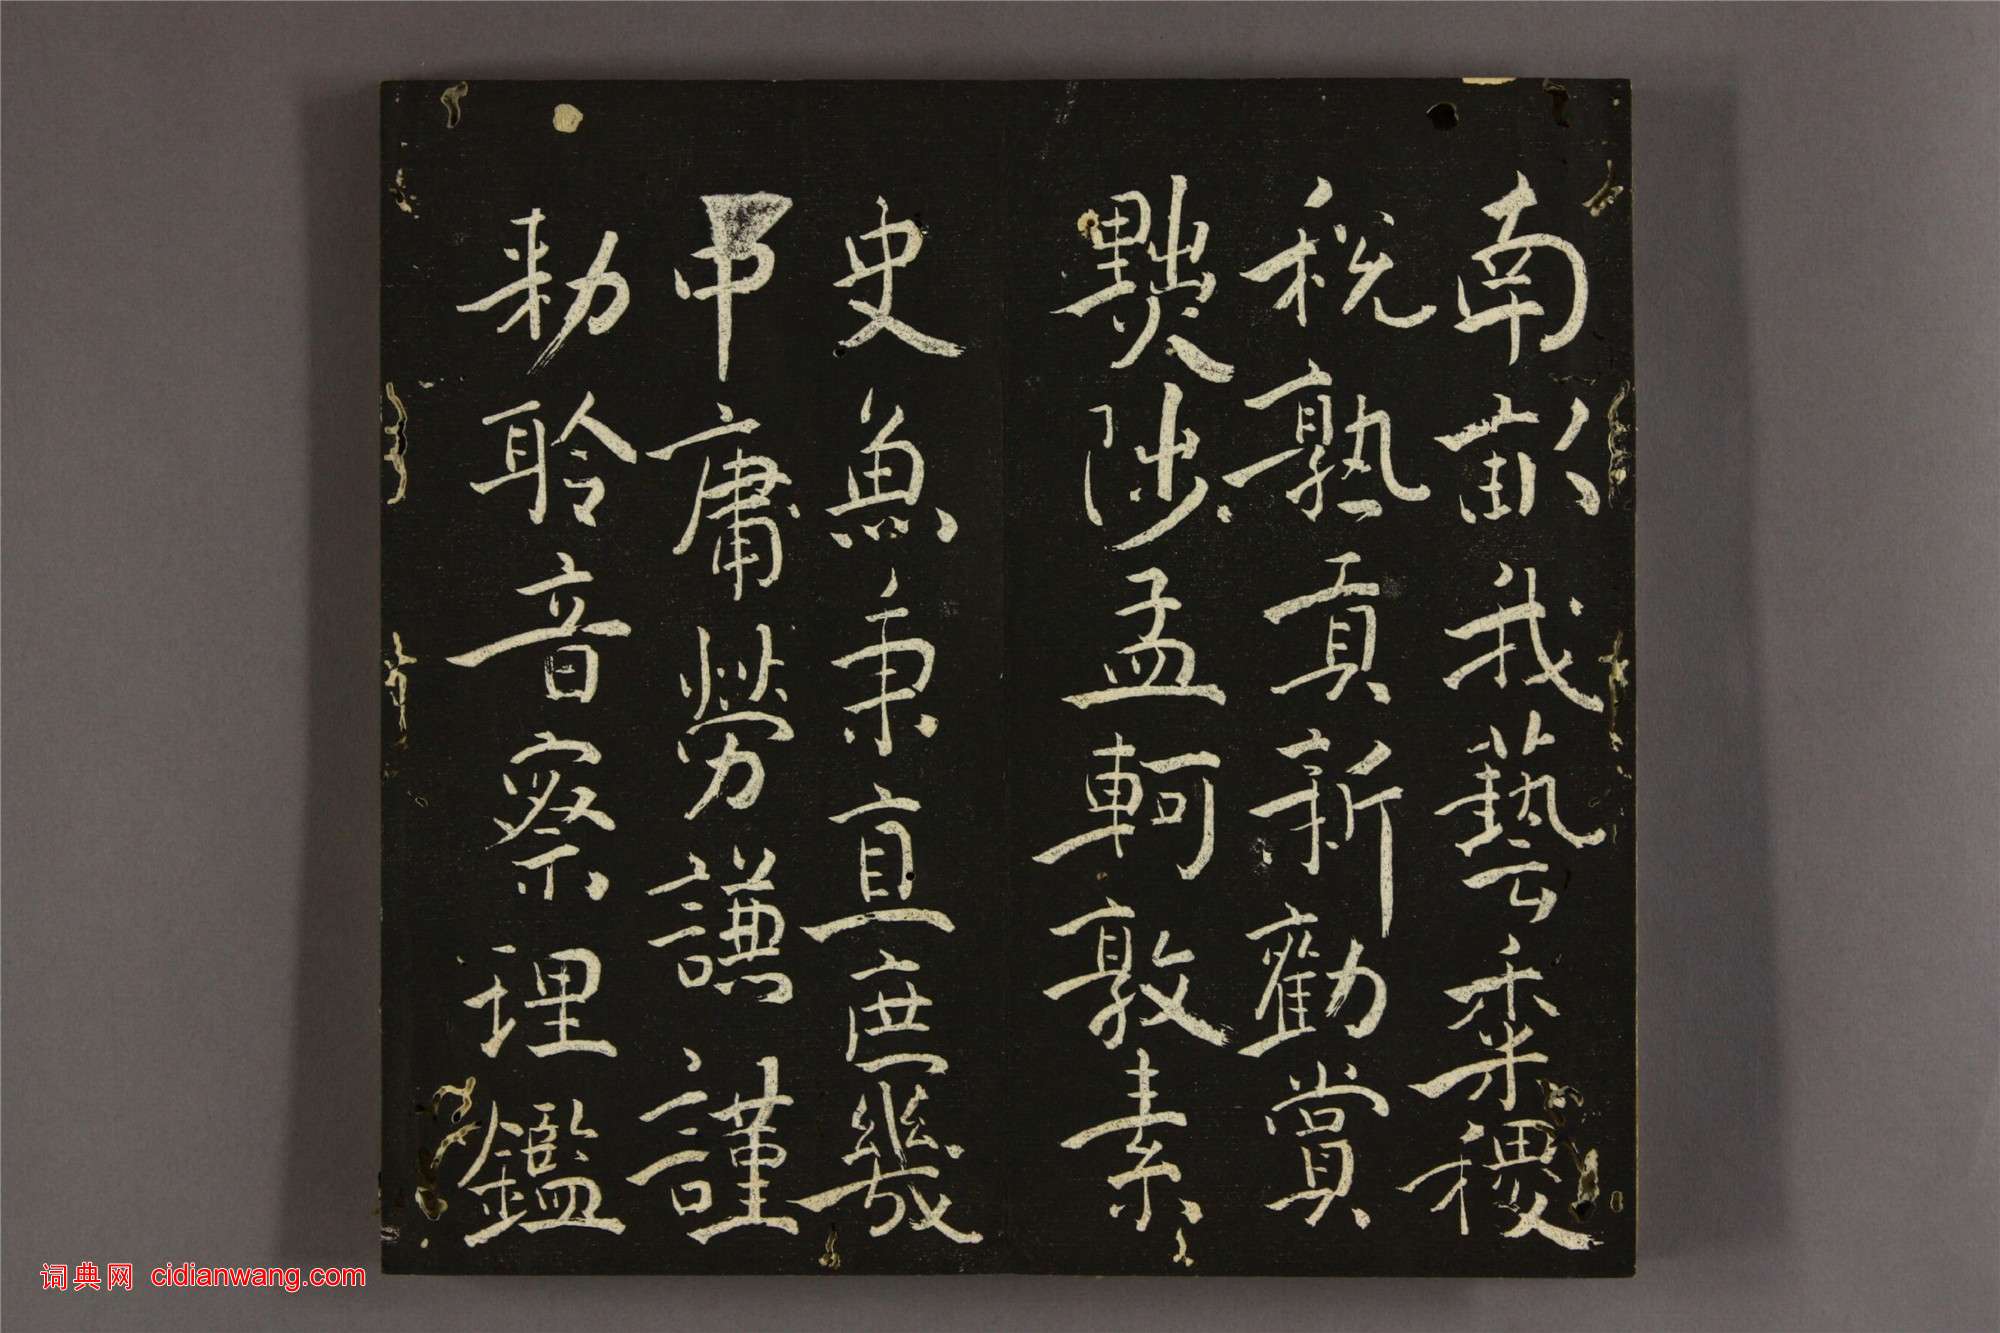 南畝我藝黍稷
稅熟貢新勸賞
黜陟孟軻敦素
史魚秉直庶幾
中庸勞謙謹
勑聆音察理鑑
词典网 cidianwang.com